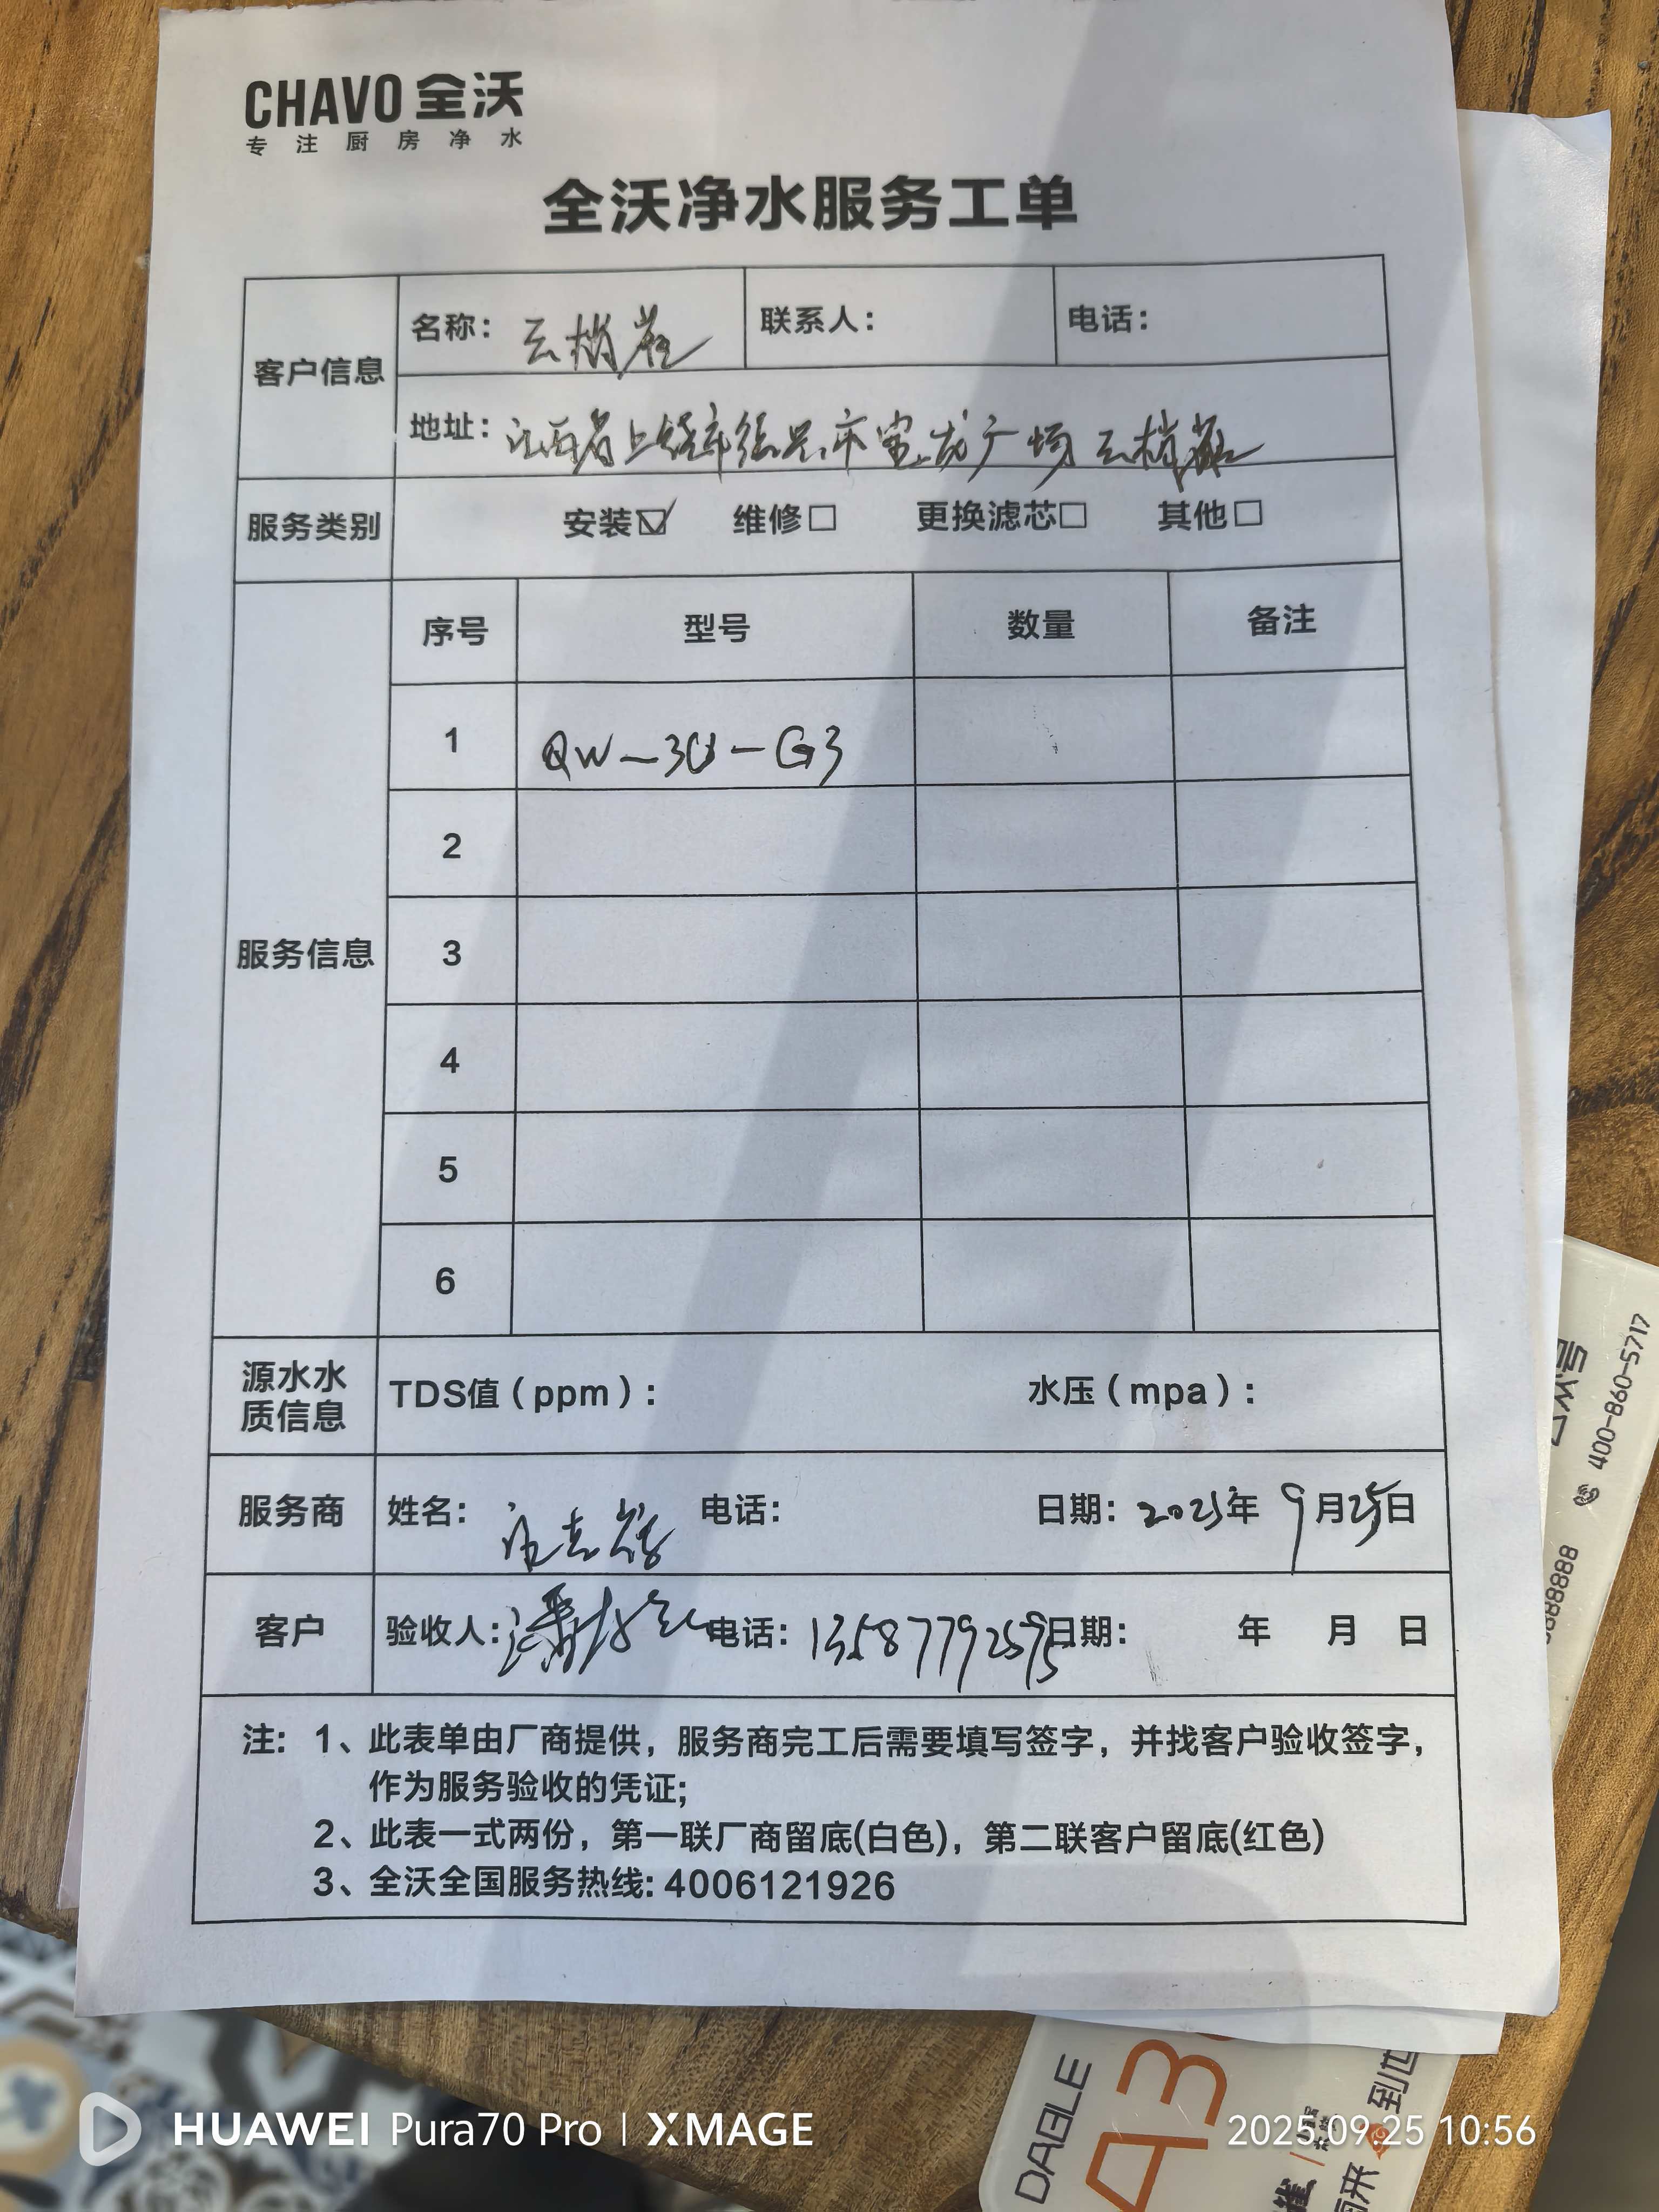 CHAVO 全沃
专注厨房净水
全沃净水服务工单
客户信息
名称：云梢
联系人：
电话：
地址：江西省上饶市德兴市宝龙广场 云梢
服务类别
安装☑ 维修☐ 更换滤芯☐ 其他☐
服务信息
序号 型号 数量 备注
1 QW-30-G3
2
3
4
5
6
源水水质信息
TDS值（ppm）：
水压（mpa）：
服务商
姓名：
电话：
日期：2025年 9月25日
客户
验收人：潘
电话：13587792595
日期： 年 月 日
注：1、此表单由厂商提供，服务商完工后需要填写签字，并找客户验收签字，
作为服务验收的凭证；
2、此表一式两份，第一联厂商留底(白色)，第二联客户留底(红色)
3、全沃全国服务热线: 4006121926
400-860-5717
88888
DABLE
A3
到世
HUAWEI Pura70 Pro | XMAGE
2025.09.25 10:56